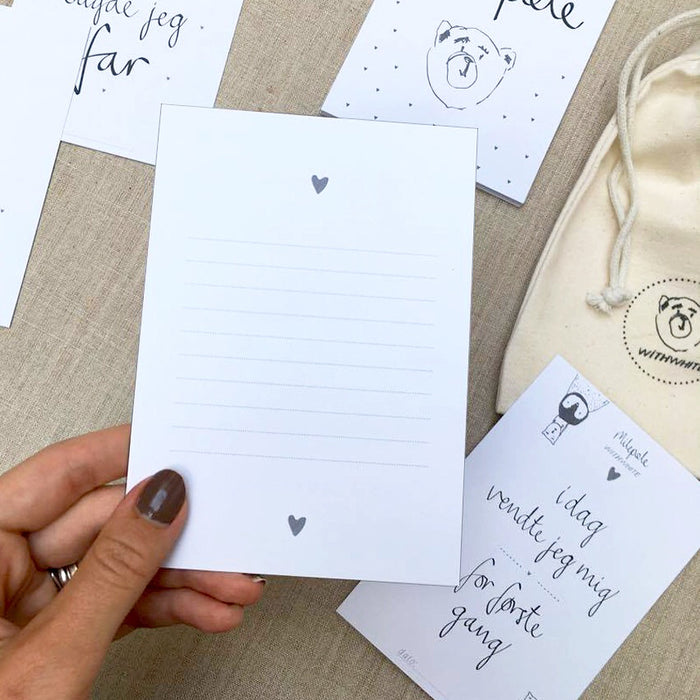 sagde jeg
far
WITHWHITE
Milepæle
WITHWHITE
i dag
vendte jeg mig
for første
gang
dato: